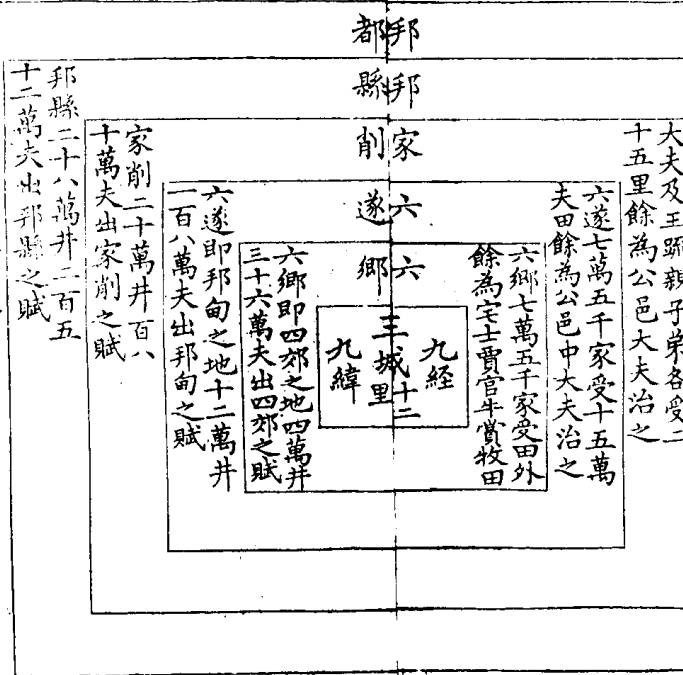 邦都
邦縣
家削
六遂
六鄉
大夫及王䟽親子弟各受二
十五里餘為公邑大夫治之
六遂七萬五千家受十五萬
夫田餘為公邑中大夫治之
六鄉七萬五千家受田外
餘為宅士賈官牛賞牧田
九経
三城十二里
九緯
六鄉即四郊之地四萬井
三十六萬夫出四郊之賦
六遂即邦甸之地十二萬井
一百八萬夫出邦甸之賦
家削二十萬井百八
十萬夫出家削之賦
邦縣二十八萬井二百五
十二萬夫出邦縣之賦